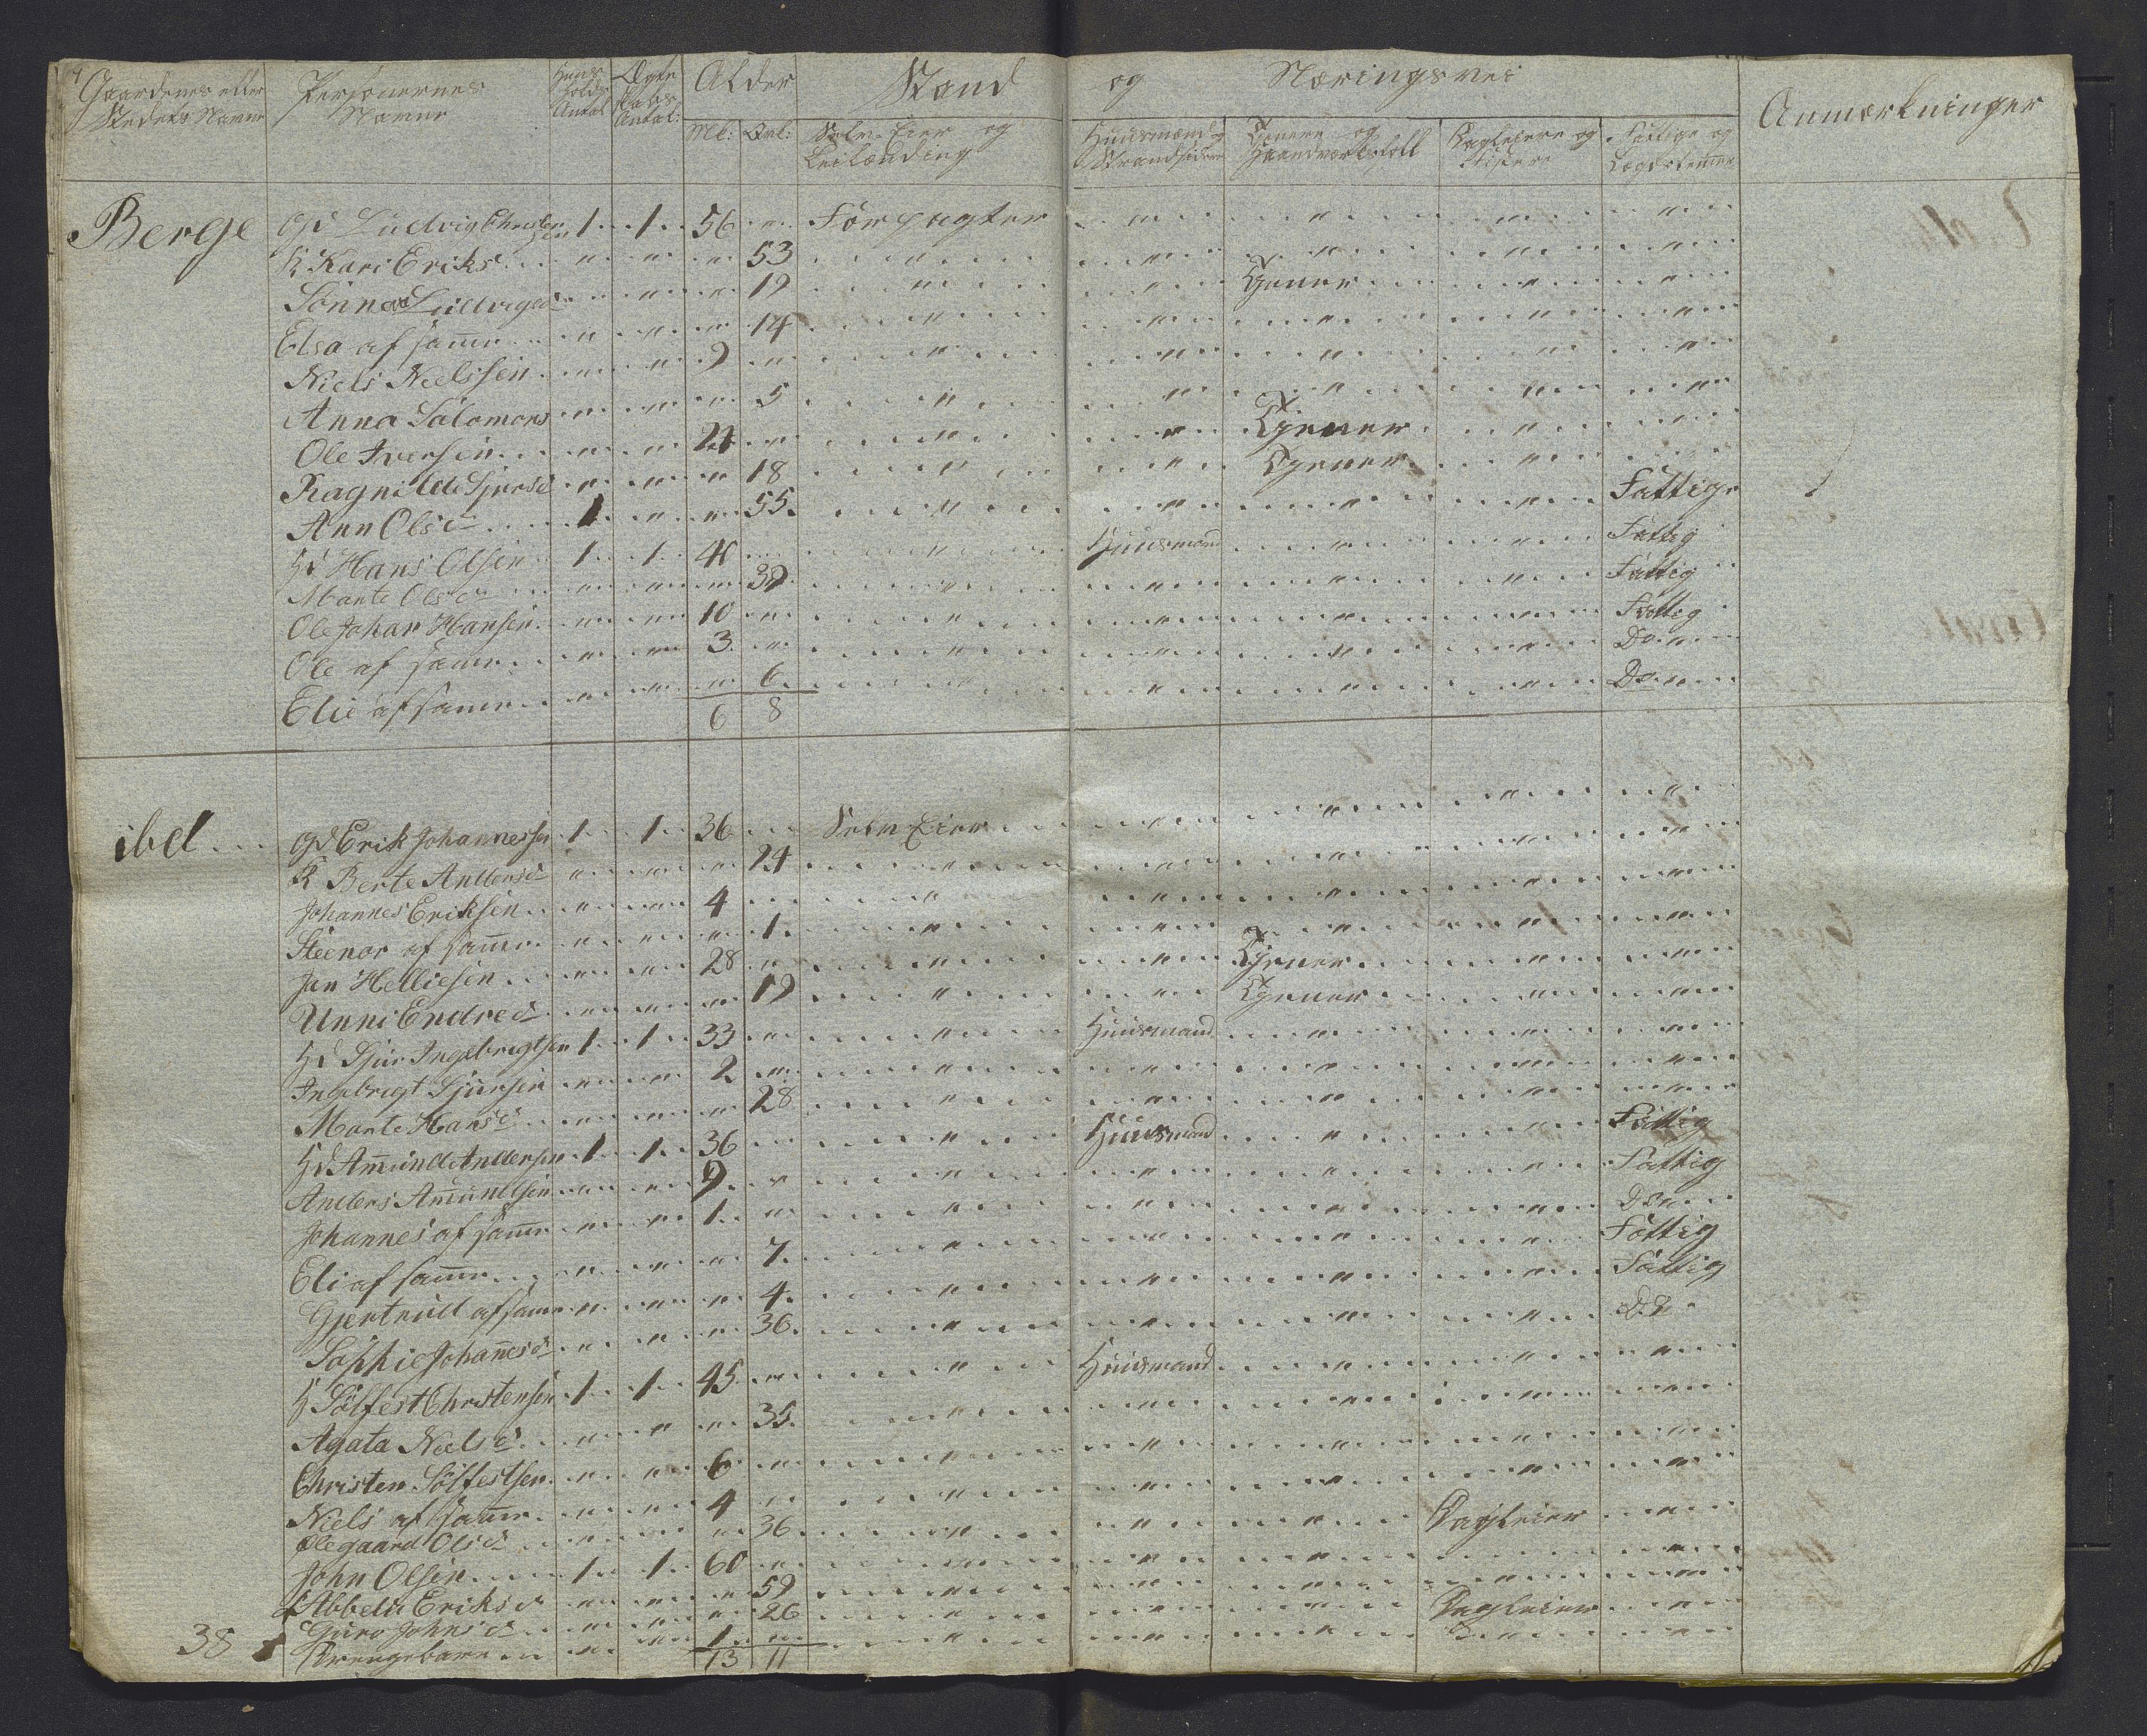 Gaardenes eller Stedets Navne | Personernes Navne | Huus holds Antal | Ægte skabs Antal: | Alder | Stand og Næringsvei | Anmærkninger
Mk: | Qvk: | Selv-Eier og Leilænding | Huusmænd og Strandsidere | Tjenere og Haandværksfolk | Dagleiere og | Fattige og Lægdslemmer
Berge | Gd Ludvig Christensen | 1 | 1 | 56 | Forpagter
K Kari Eriksd | 53
Sønneva Ludvigsd | 19 | Tjener
Elsa af samme | 14
Niels Nielssen | 9
Anna Salomons | 5
Ole Iversen | 21 | Tjener
Ragnilde Sjursd | 18 | Tjener
Ann Olsd | 1 | 55 | Fattige
Hd Hans Olsen | 1 | 1 | 41 | Huusmand | Fattig
Marite Olsd | 39 | Fattig
Ole Johan Hansen | 10 | Fattig
Ole af samme | 3 | Do
Elie af samme | 6 | Do
6 | 8
ibd | Gd Erik Johannessen | 1 | 1 | 36 | Selv Eier
K Berte Andersd | 24
Johannes Eriksen | 4
Steenor af samme | 1
Jan Helliesen | 28 | Tjener
Unni Endred | 19 | Tjener
Hd Sjur Ingebrigtsen | 1 | 1 | 33 | Huusmand
Ingebrigt Sjursen | 2
Marite Hansd | 28
Hd Amund Andersen | 1 | 1 | 36 | Huusmand | Fattig
Anders Amundsen | 9 | Fattig
Johannes af samme | 1 | Do
Eli af samme | 7 | Fattig
Gjertrud af samme | 4 | Fattig
Sophie Johannesd | 36 | Do
H Sølfest Christensen | 1 | 1 | 45 | Huusmand
Agata Nielsd | 35
Christen Sølfestsen | 6
Niels af samme | 4
Olegaard Olsd | 36 | Dagleier
John Olsen | 1 | 1 | 60
Abbelu Eriksd | 59
Guro Johnsd | 26 | Dagleier
38 | Drengebarn | 1
13 | 11